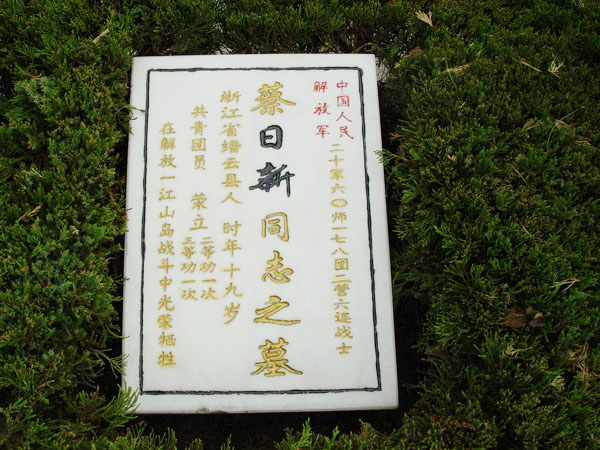 中国人民
解放军
二十军六〇师一七八团二营六连战士
蔡日新同志之墓
浙江省缙云县人 时年十九岁
共青团员 荣立
二等功一次
三等功一次
在解放一江山岛战斗中光荣牺牲